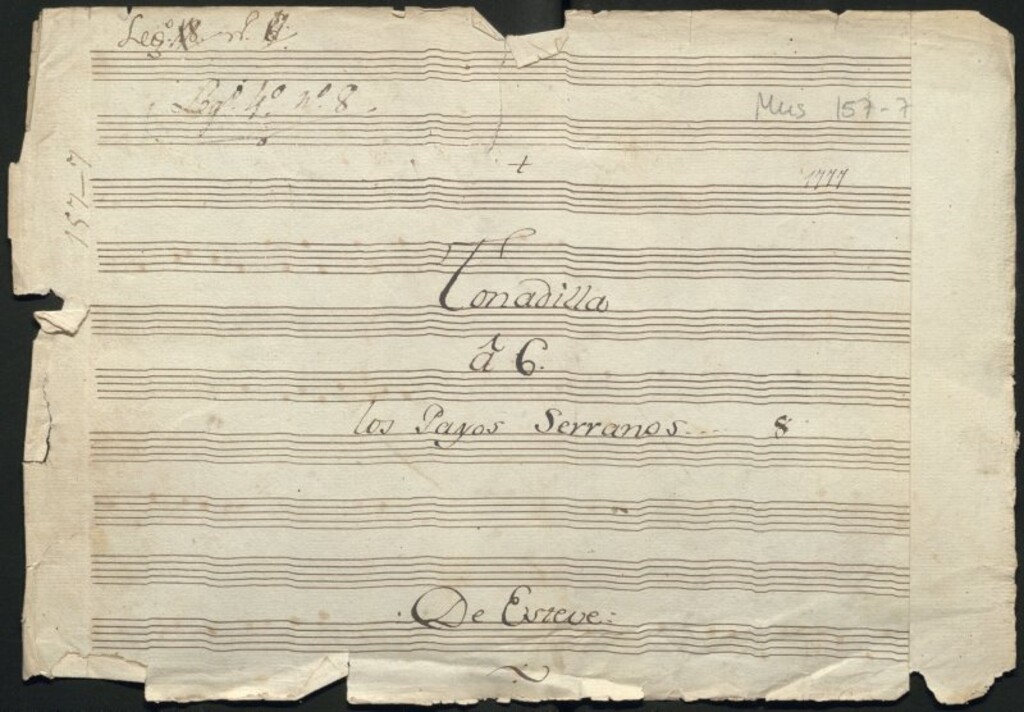 Leg.º 18. n.º
Leg.º 4.º n.º 8.
Mus 157-7
1777
157-7
Tonadilla
â 6.
los Payos Serranos 8
De Esteve: